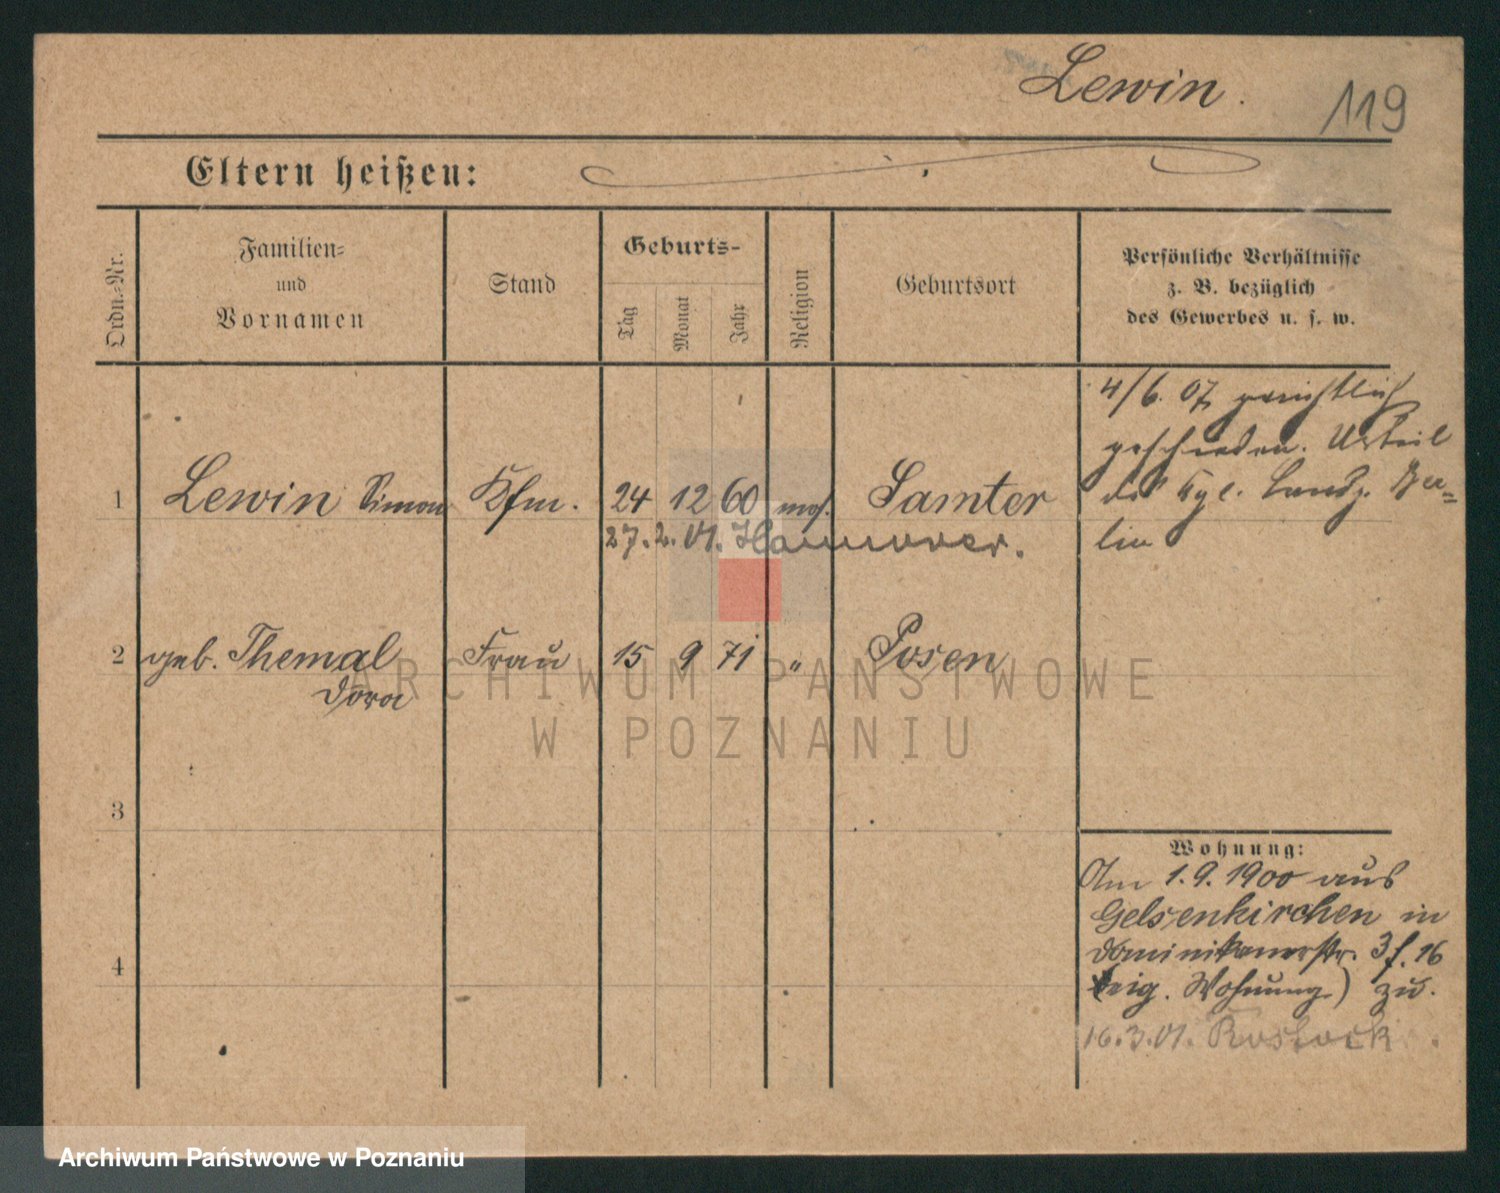 Lewin. 119
Eltern heißen:
Ordn.-Nr.
Familien-
und
Vornamen
Stand
Geburts-
Tag
Monat
Jahr
Religion
Geburtsort
Persönliche Verhältnisse
z. B. bezüglich
des Gewerbes u. s. w.
1 Lewin Simon Kfm. 24 12 60 mos. Samter
27. 2. 01. Hannover.
4/6. 07 gerichtlich
geschieden. Urteil
des kgl. Landg. Ber=
lin
2 geb. Themal Frau 15 9 71 " Posen
Dora
3
4
Wohnung:
Am 1.9.1900 aus
Gelsenkirchen in
Dominikanerstr. 3 f. 16
(eig. Wohnung) zu.
16.3.01. Rostock.
ARCHIWUM PAŃSTWOWE
W POZNANIU
Archiwum Państwowe w Poznaniu